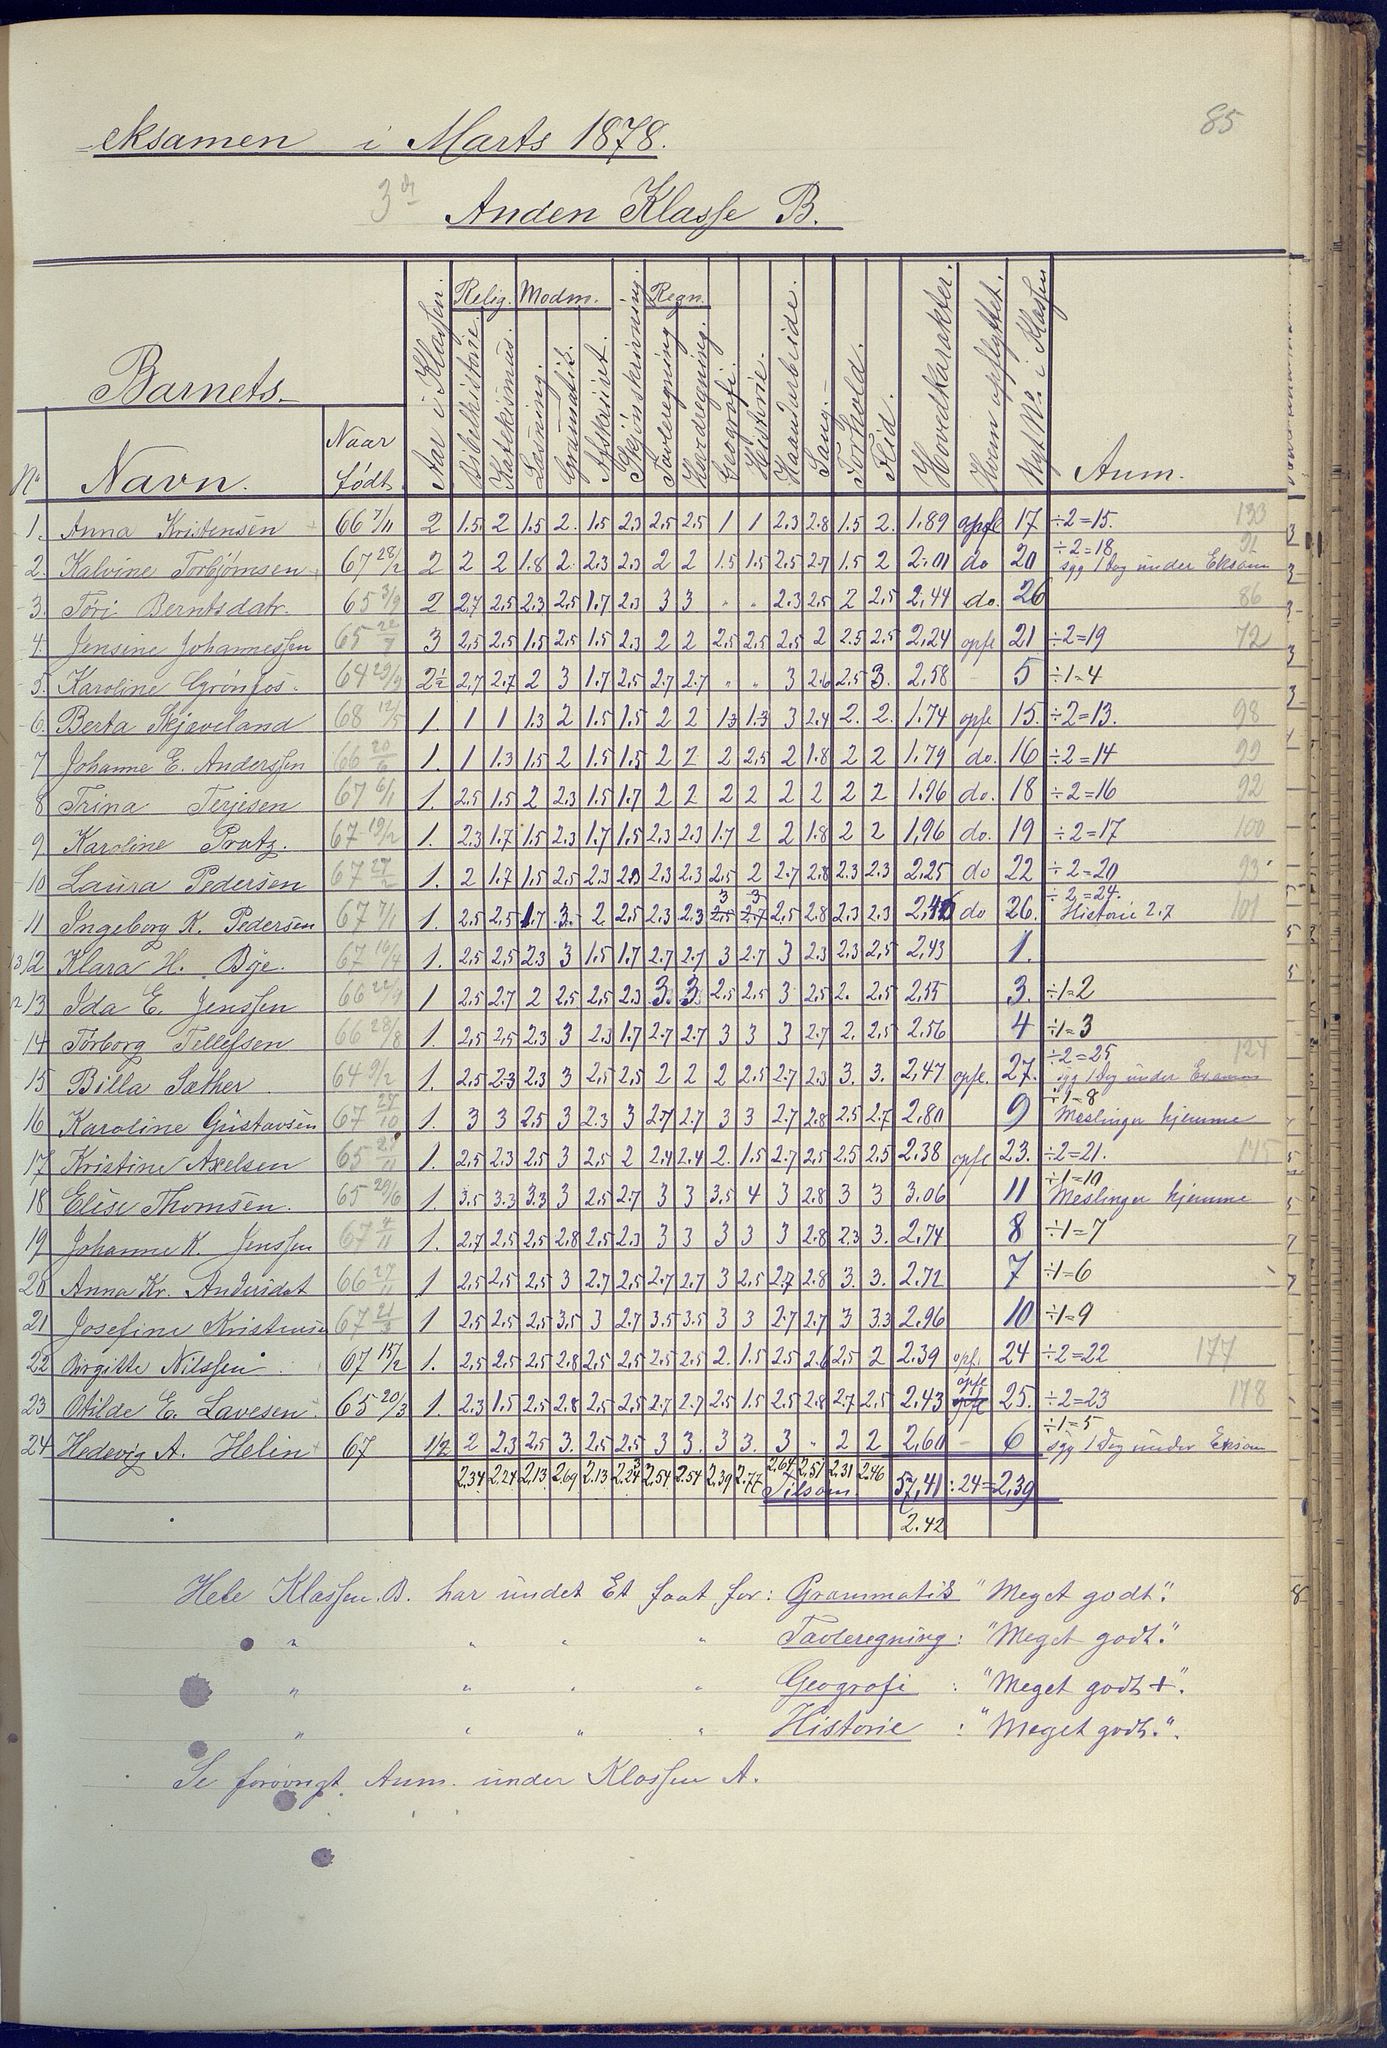 85
eksamen i Marts 1878.
3die Anden Klasse B.
Barnets
No Navn. Naar født. Aar i Klassen. Relig. Bibelhistorie. Katekismus. Modm. Læsning. Grammatik. Afskrivt. Skjønskrivning. Regn. Tavleregning. Hovedregning. Geografi. Historie. Haandarbeide. Sang. Forhold. Flid. Hovedkarakter. Hvem opflyttet. Nyt No i Klassen Anm.
1. Anna Kristensen 66 7/11 2 1.5 2 1.5 2. 1.5 2.3 2.5 2.5 1 1 2.3 2.8 1.5 2. 1.89 opfl 17 ÷2=15. 133
2. Kalvine Torbjørnsen 67 28/2 2 2 2 1.8 2 2.3 2.3 2 2 1.5 1.5 2.5 2.7 1.5 2 2.01 do 20 ÷2=18 syg 1 Dag under Eksam 91
3. Tori Berntsdatr. 65 3/9 2 2.7 2.5 2.3 2.5 1.7 2.3 3 3 " " 2.3 2.5 2 2.5 2,44 do. 26 86
4. Jensine Johannessen 65 22/7 3 2,5 2,5 1.5 2,5 1.5 2.3 2 2 2.5 2,5 2,5 2 2.5 2.5 2,24 opfl 21 ÷2=19 72
5. Karoline Grønfos. 64 29/9 2½ 2.7 2.7 2 3 1.7 2,5 2.7 2.7 " " 3 2.6 2.5 3. 2,58 - 5 ÷1=4
6. Berta Skjeveland 68 12/5 1. 1 1 1.3 2 1.5 1.5 2 2 1.3 1.3 3 2.4 2. 2. 1.74 opfl 15. ÷2=13. 98
7 Johanne E. Anderssen 66 20/6 1. 1 1.3 1.5 2 1.5 1.5 2 2 2 2,5 2 1.8 2 2 1.79 do. 16 ÷2=14 99
8 Trina Terjesen 67 6/4 1. 2.5 1.5 2 2.3 1.5 1.7 2 2 2 2 2 2 2 2 1.96 do. 18 ÷2=16 92
9 Karoline Pratz. 67 19/2 1. 2.3 1.7 1.5 2.3 1.7 1.5 2.3 2.3 1.7 2 2 1.8 2 2 1,96 do. 19 ÷2=17 100
10 Laura Pedersen 67 27/2 1. 2 1.7 1.5 2.5 2.3 2.3 2.3 2.3 2,5 2 2.7 2.8 2.3 2.3 2,25 do 22 ÷2=20 93
11 Ingeborg K. Pedersen 67 7/1 1. 2,5 2,5 1.7 3. 2. 2,5 2.3 2.3 3 3 2,5 2.8 2.3 2.3 2,46 do 26. ÷2=24. Historie 2.7 101
13 12 Klara H. Bye. 67 16/4 1. 2,5 2,5 2.3 3 1.5 1.7 2.7 2.7 3 2.7 3 2.3 2.3 2,5 2,43 1.
12 13 Ida E. Jenssen 66 22/9 1 2,5 2.7 2 2,5 2,5 2.3 3 3 2,5 2,5 3 2,5 2. 2,5 2,55 3. ÷1=2
14 Torborg Tellefsen 66 28/8 1. 2,5 2,5 2.3 3 2.3 1.7 2.7 2.7 3 3 3 2.7 2. 2,5 2.56 4 ÷1=3
15 Billa Sæther 64 9/2 1. 2,5 2.3 2.3 3 2,5 2,5 2 2 2 2,5 2.7 2.3 3. 3. 2,47 opfl. 27. ÷2=25 syg 1 Dag under Examen 124
16 Karoline Gustavsen 67 27/10 1. 3 3 2.5 3 2.3 3 2.7 2.7 3 3 2.7 2.8 2.5 2.7 2,80 9 ÷1=8 Meslinger hjemme
17 Kristine Axelsen 65 21/11 1. 2,5 2.3 2,5 3 2,5 2 2.4 2.4 2. 1.5 2.7 2,5 2.5 2,5 2.38 opfl 23. ÷2=21. 145
18 Elise Thomsen. 65 29/6 1. 3.5 3.3 3.3 3 2.5 2.7 3 3 3,5 4 3 2.8 3 3 3.06 11 ÷1=10 Meslinger hjemme
19 Johanne K. Jenssen 67 4/11 1. 2.7 2,5 2,5 2.8 2,5 2.3 3 3 3 3 3 2.8 2.3 3. 2.74 8 ÷1=7
20 Anna Kr. Andersdat 66 27/11 1 2,5 2,5 2,5 3 2.7 2,5 2.7 2.7 3 2,5 2.7 2.8 3. 3. 2.72 7 ÷1=6
21 Josefine Kristensen 67 21/3 1 2,5 2,5 2,5 3,5 3 2.7 3.5 3.5 3 3 2.7 2.7 3 3.3 2.96 10 ÷1=9
22 Birgitte Nilssen 67 15/2 1. 2,5 2,5 2,5 2.8 2,5 2,5 2,5 2,5 2. 1.5 2.5 2.6 2,5 2 2.39 opf. 24 ÷2=22 177
23 Otilde E. Lavesen 65 20/3 1. 2.3 1.5 2,5 2.8 2,5 2,5 2.7 2.7 2,5 1.5 2,5 2.8 2.7 2,5 2,43 opfl 25. ÷2=23 178
24 Hedevig A. Helin 67 1/2 2 2.3 2,5 3. 2,5 2,5 3 3. 3 3. 3 " 2 2 2,60 - 6 ÷1=5 syg 1 Dag under Eksam
2,34 2.24 2,13 2,69 2.13 2.24 2,54 2.54 2,39 2.77 2,64 2,51 2,31 2,46
Tilsam. 57,41 : 24 = 2,39
2.42
Hele Klassen B. har undet Et faat for: Grammatik "Meget godt".
" " " " Tavleregning: "Meget godt."
" " " " Geografi : "Meget godt +".
" " " " Historie : "Meget godt.".
Se forøvrigt Anm. under Klassen A.